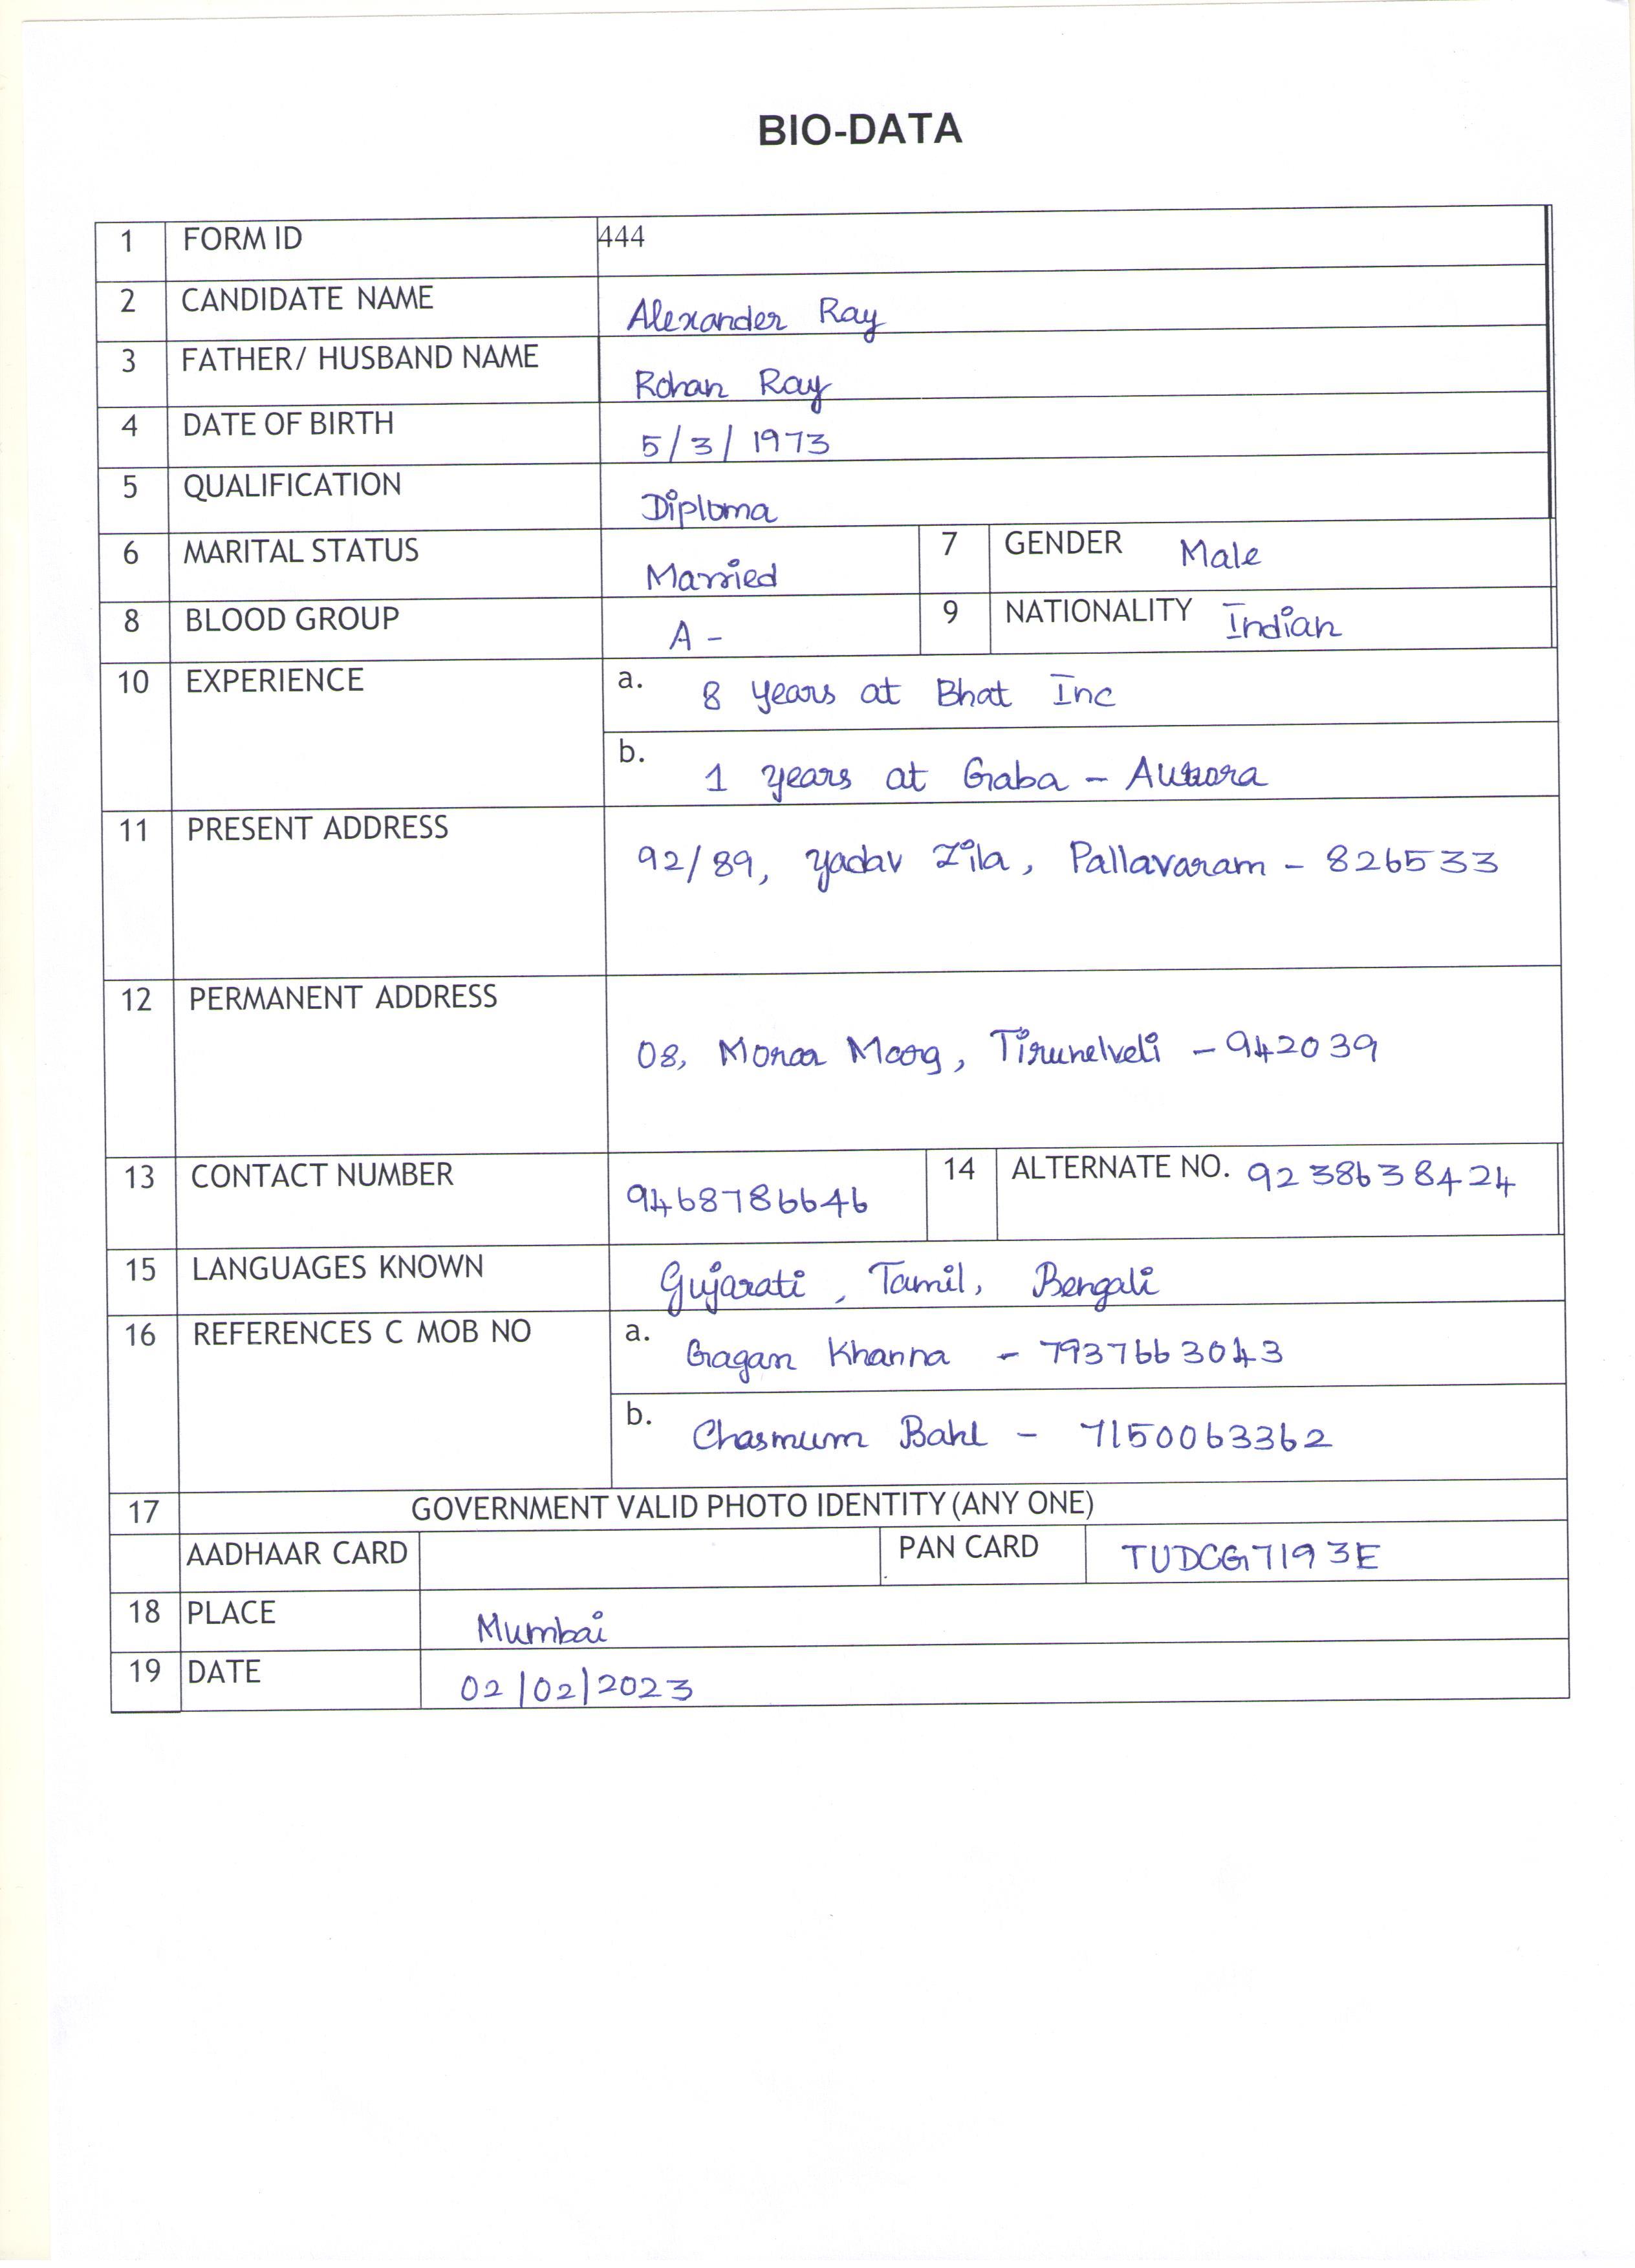 BIO-DATA
1 FORM ID 444
2 CANDIDATE NAME Alexander Ray
3 FATHER/ HUSBAND NAME Rohan Ray
4 DATE OF BIRTH 5/3/1973
5 QUALIFICATION Diploma
6 MARITAL STATUS Married 7 GENDER Male
8 BLOOD GROUP A - 9 NATIONALITY Indian
10 EXPERIENCE a. 8 years at Bhat Inc
b. 1 years at Gaba -
11 PRESENT ADDRESS 92/89, Yadav Zila, Pallavaram - 826533
12 PERMANENT ADDRESS 08, Tirunelveli - 942039
13 CONTACT NUMBER 9468786646 14 ALTERNATE NO. 9238638424
15 LANGUAGES KNOWN Gujarati, Tamil, Bengali
16 REFERENCES C MOB NO a. Gagan Khanna - 7937663043
b. Chasmum Bahl - 7150063362
17 GOVERNMENT VALID PHOTO IDENTITY (ANY ONE)
AADHAAR CARD PAN CARD TUDCG7193E
18 PLACE Mumbai
19 DATE 02/02/2023